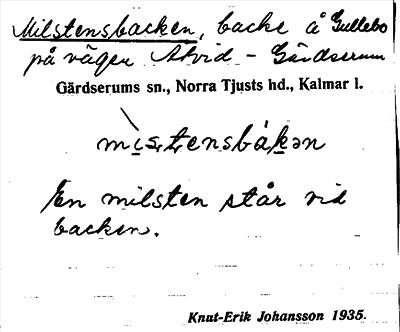 Milstensbacken, backe å Gullebo
på vägen Åtvid - Gärdserum
Gärdserums sn., Norra Tjusts hd., Kalmar l.
En milsten står vid
backen.
Knut-Erik Johansson 1935.